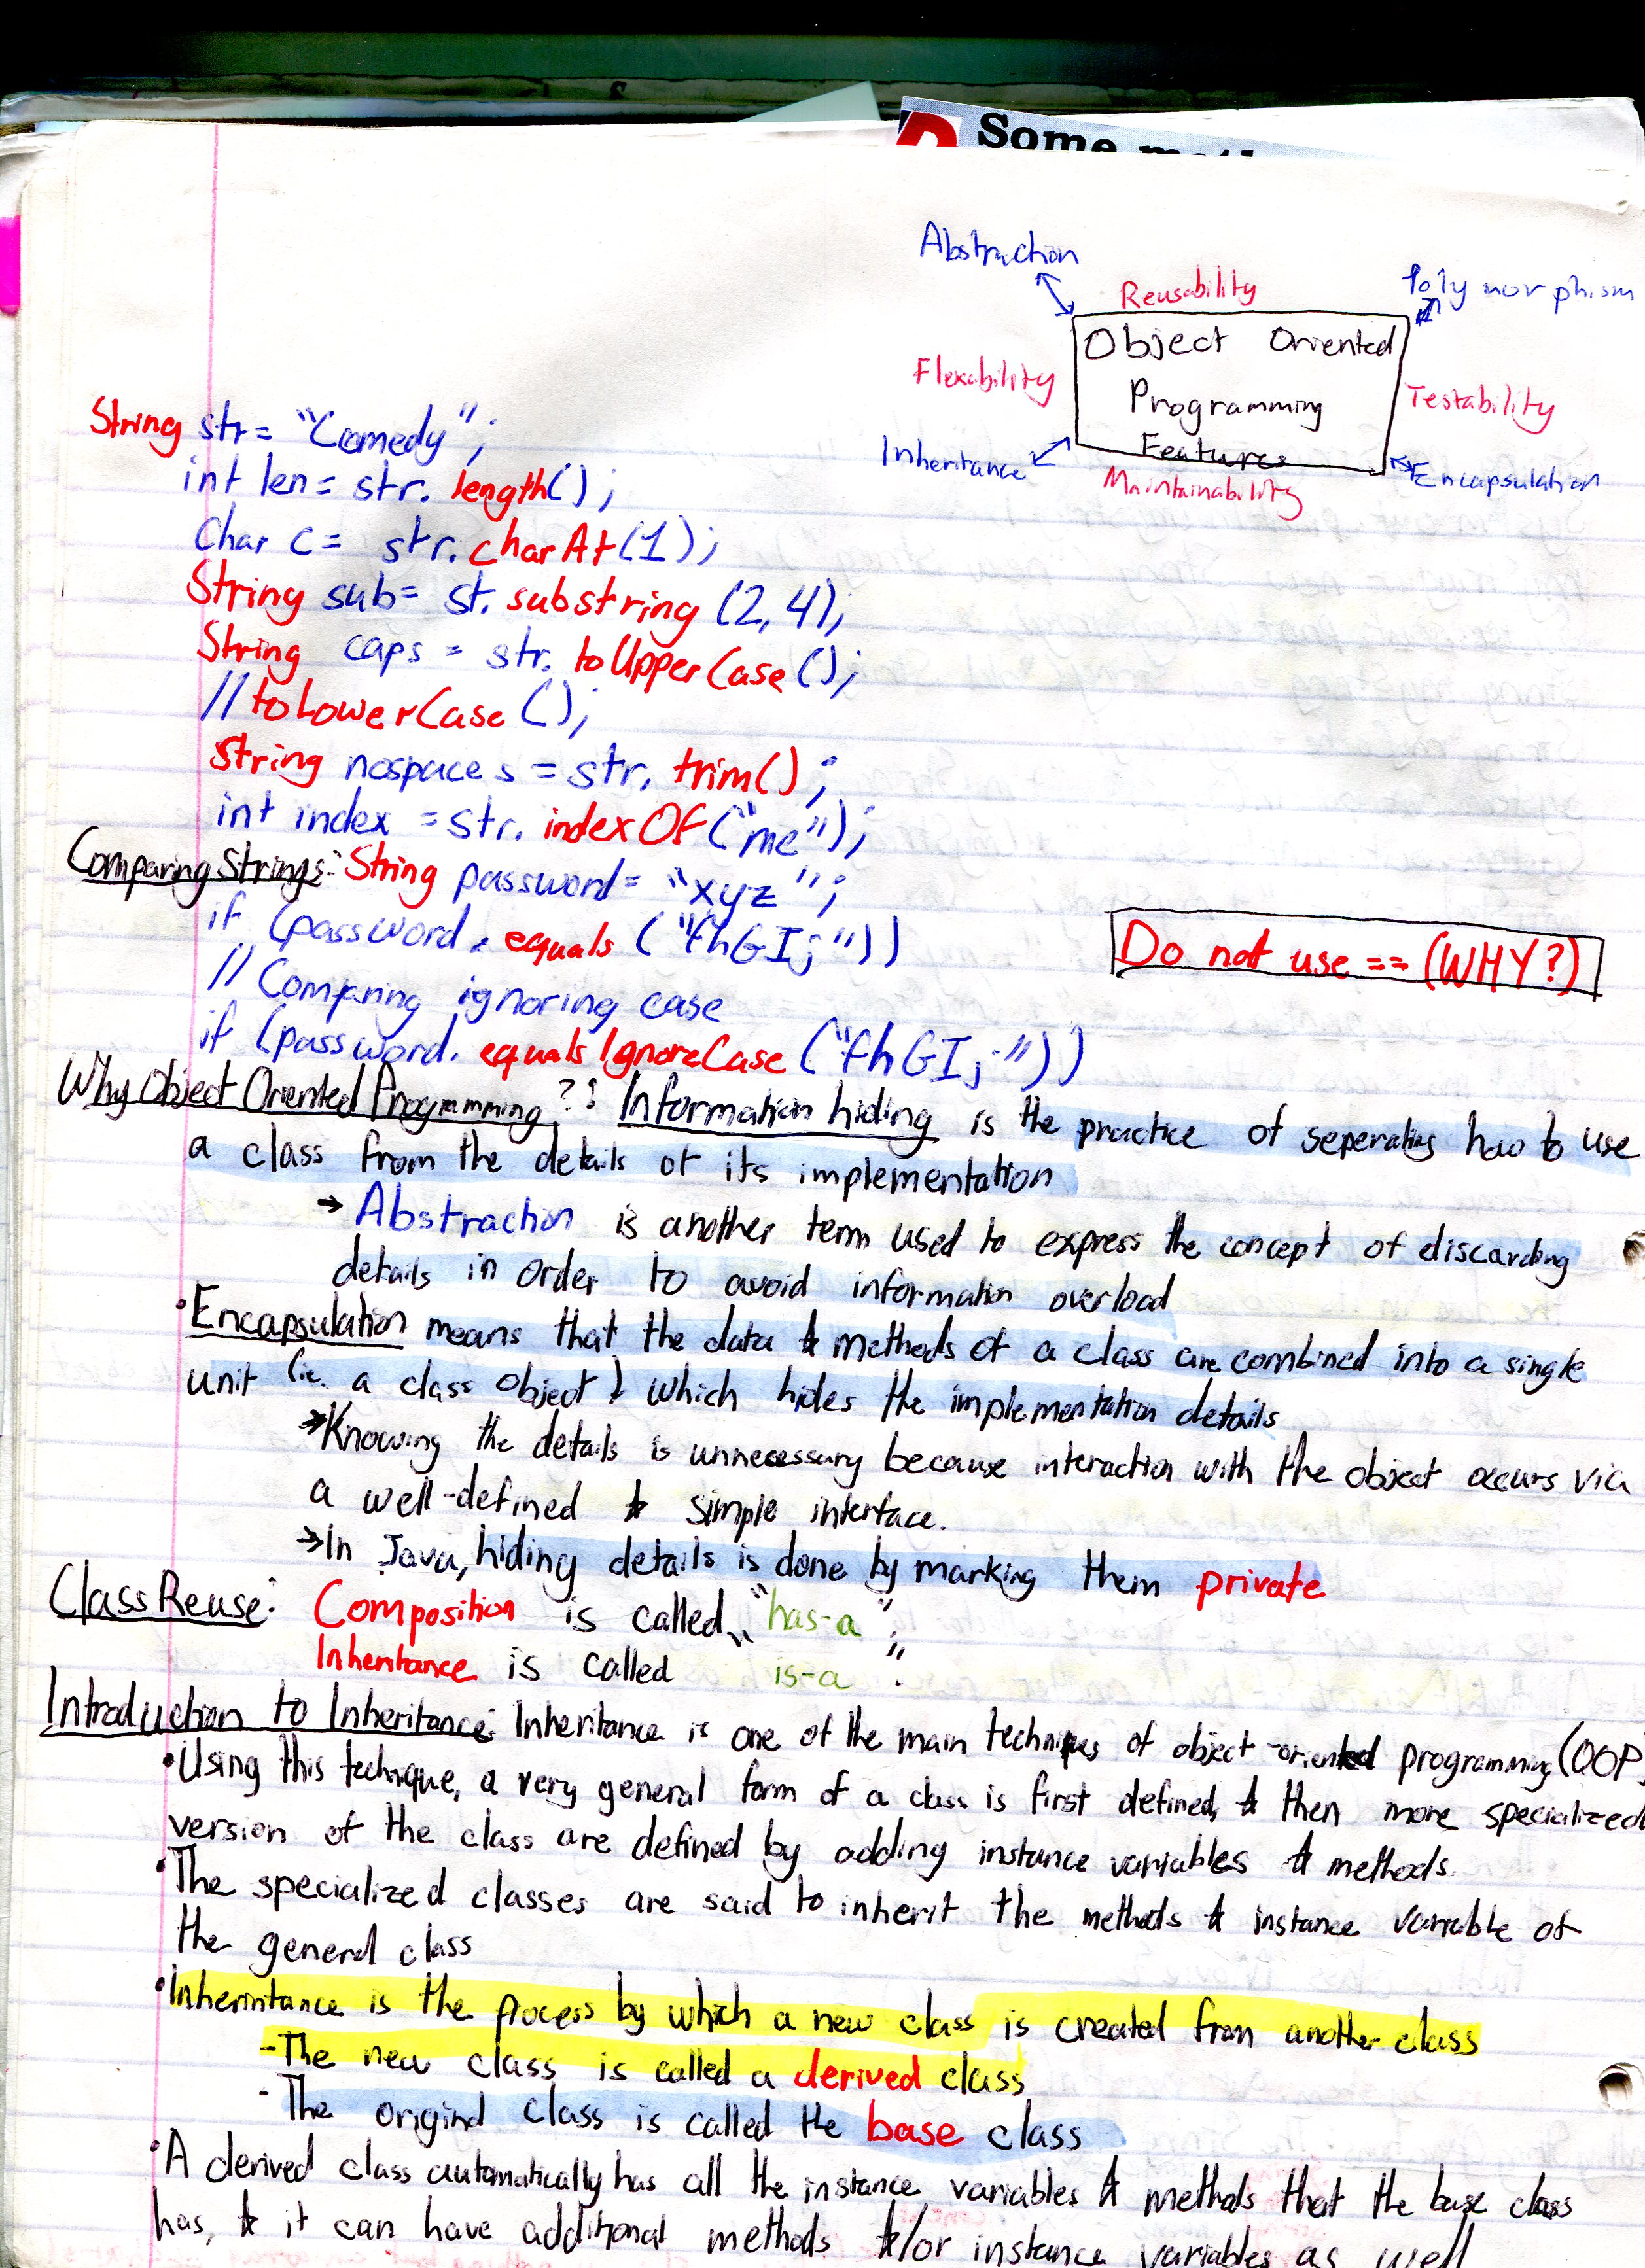 Some
Abstraction
Reusability
Polymorphism
Object Oriented
Flexability
Programming
Testability
Features
Inheritance
Encapsulation
Maintainability
String str = "Comedy";
int len = str.length();
Char c = str.charAt(1);
String sub = st.substring (2,4);
String caps = str.toUpperCase();
//toLowerCase();
String nospaces = str.trim();
int index = str.indexOf("me");
Comparing Strings: String password = "xyz";
if (password.equals("fhGIj"))
Do not use == (WHY?)
// Comparing ignoring case
if (password.equalsIgnoreCase("fhGIj"))
Why Object Oriented Programming?? Information hiding is the practice of seperating how to use
a class from the details of its implementation
→ Abstraction is another term used to express the concept of discarding
details in order to avoid information overload
• Encapsulation means that the data & methods of a class are combined into a single
unit (ie. a class object) which hides the implementation details
→ Knowing the details is unnecessary because interaction with the object occurs via
a well-defined & simple interface.
→ In Java, hiding details is done by marking them private
Class Reuse: Composition is called "has-a";
Inheritance is called "is-a".
Introduction to Inheritance: Inheritance is one of the main techniques of object-oriented programming (OOP)
• Using this technique, a very general form of a class is first defined, & then more specialized
version of the class are defined by adding instance variables & methods.
• The specialized classes are said to inherit the methods & instance variable of
the general class
• Inherintance is the process by which a new class is created from another class
- The new class is called a derived class
- The original class is called the base class
• A derived class automatically has all the instance variables & methods that the base class
has, & it can have additional methods &/or instance variables as well